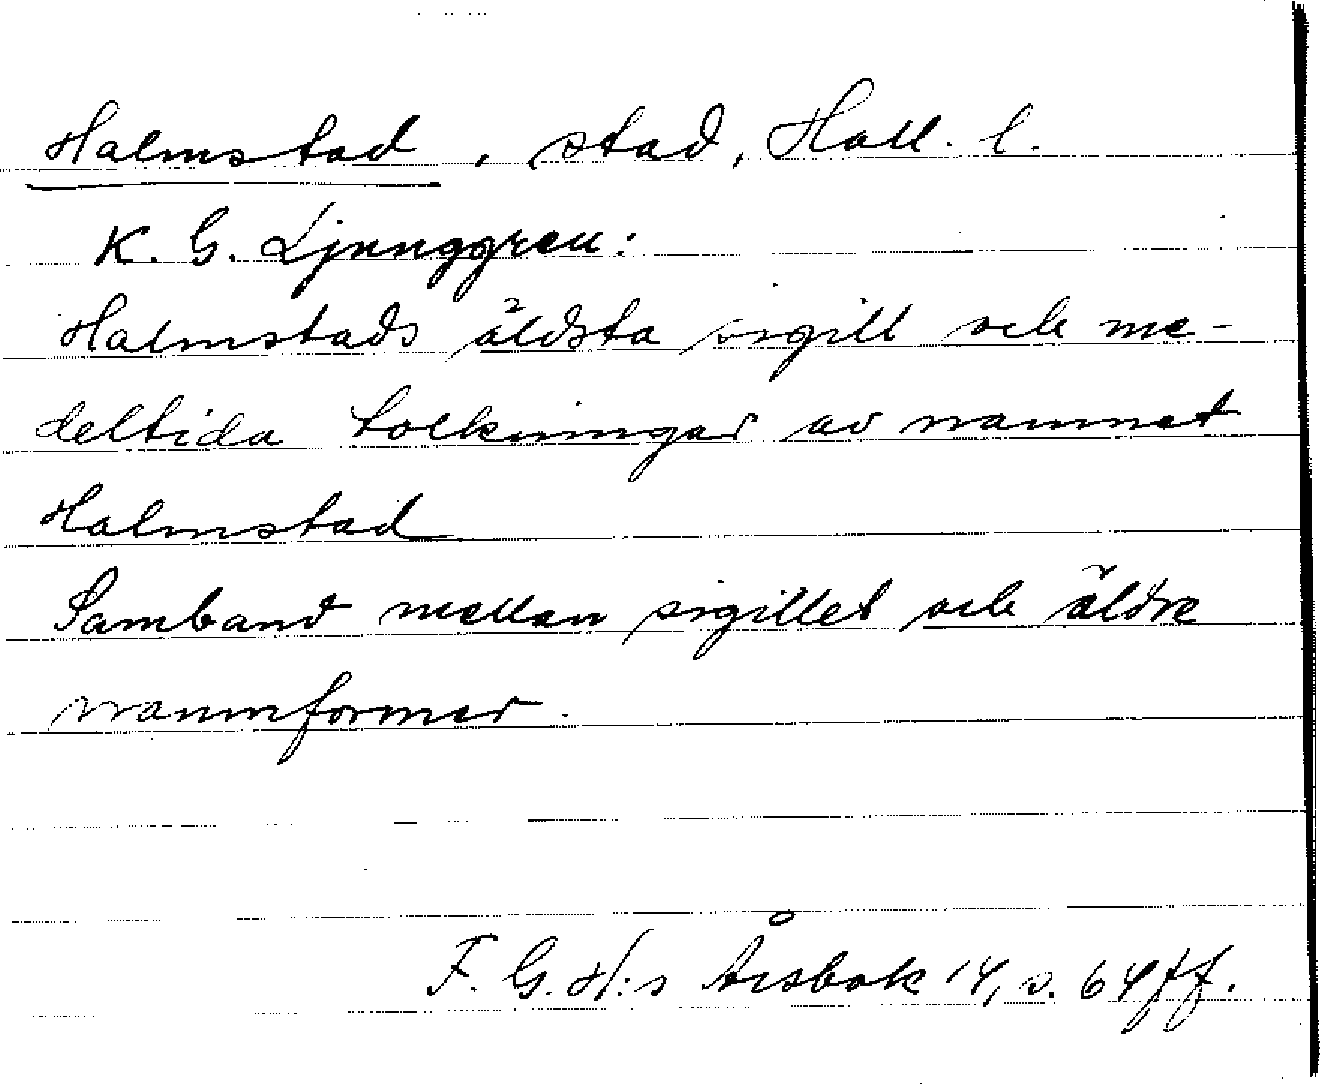 Halmstad, stad, Hall. l.
K. G. Ljunggren:
Halmstads äldsta sigill och me-
deltida tolkningar av namnet
Halmstad
Samband mellan sigillet och äldre
namnformer.
F. G. H:s Årsbok 14, s. 64ff.